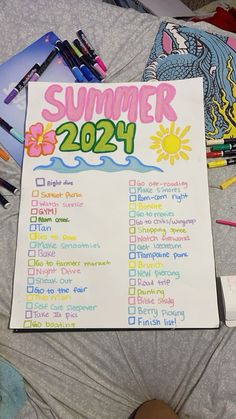 SUMMER
2024
Night dive
Sunset Picnic
Watch sunrise
GYM!
Mom cross
Tan
Go to park
Make Smoothies
Bake
Go to farmers market
Night Drive
Sneak out
Go to the fair
Self Care sleepover
Take 1k pics
Go boating
Go off-roading
Make s'mores
Pom-corn night
Bonfire
Go to movies
Go to chilis/wingstop
Shopping Spree
Watch fireworks
Get icecream
Trampoline park
Brunch
New piercing
Road trip
Painting
Bible study
Berry picking
Finish list!